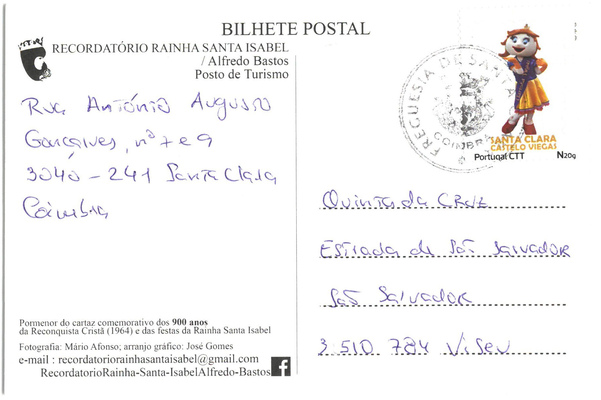 BILHETE POSTAL
RECORDATÓRIO RAINHA SANTA ISABEL
/ Alfredo Bastos
Posto de Turismo
Rua António Augusto
Gonçalves, nº 7 e 9
3040 - 241 Santa Clara
Coimbra
FREGUESIA DE SANTA
COIMBRA
SANTA CLARA
CASTELO VIEGAS
Portugal CTT N20g
Quinta da CRUZ
Estrada de São Salvador
São Salvador
3 510 784 Viseu
Pormenor do cartaz comemorativo dos 900 anos
da Reconquista Cristã (1964) e das festas da Rainha Santa Isabel
Fotografia: Mário Afonso; arranjo gráfico: José Gomes
e-mail : recordatoriorainhasantaisabel@gmail.com
RecordatorioRainha-Santa-IsabelAlfredo-Bastos